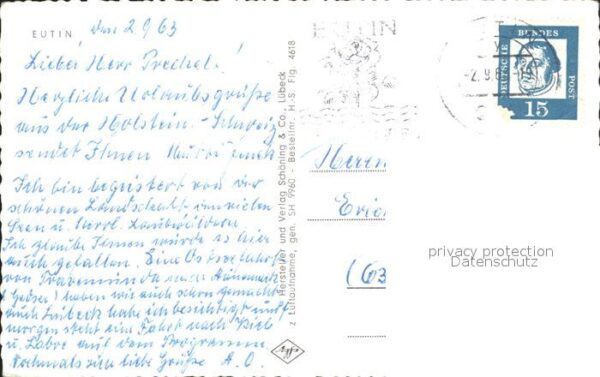 EUTIN
den 2 9 63
Lieber Herr Prechel!
Herzliche Urlaubsgrüße
aus der Holstein-Schweiz
sendet Ihnen
Ich bin begeistert von der
schönen Landschaft, den vielen
Seen u. herrl. Laubwäldern
Ich glaube Ihnen würde es hier
auch gefallen. Eine Ostseefahrt
von Travemünde nach Dänemark
(Gedser) haben wir auch schon gemacht
auch Lübeck habe ich besichtigt und
morgen steht eine Fahrt nach Kiel
u. Laboe auf dem Programm.
Nochmals viele liebe Grüße A. O.
Hersteller und Verlag Schöning & Co., Lübeck
z Luftaufnahme, gen. SH 9960 Bestellnr. H. S. Flg. 4618
EUTIN
2.9.6
DEUTSCHE BUNDES POST
15
Herrn
Eric
(63
privacy protection
Datenschutz